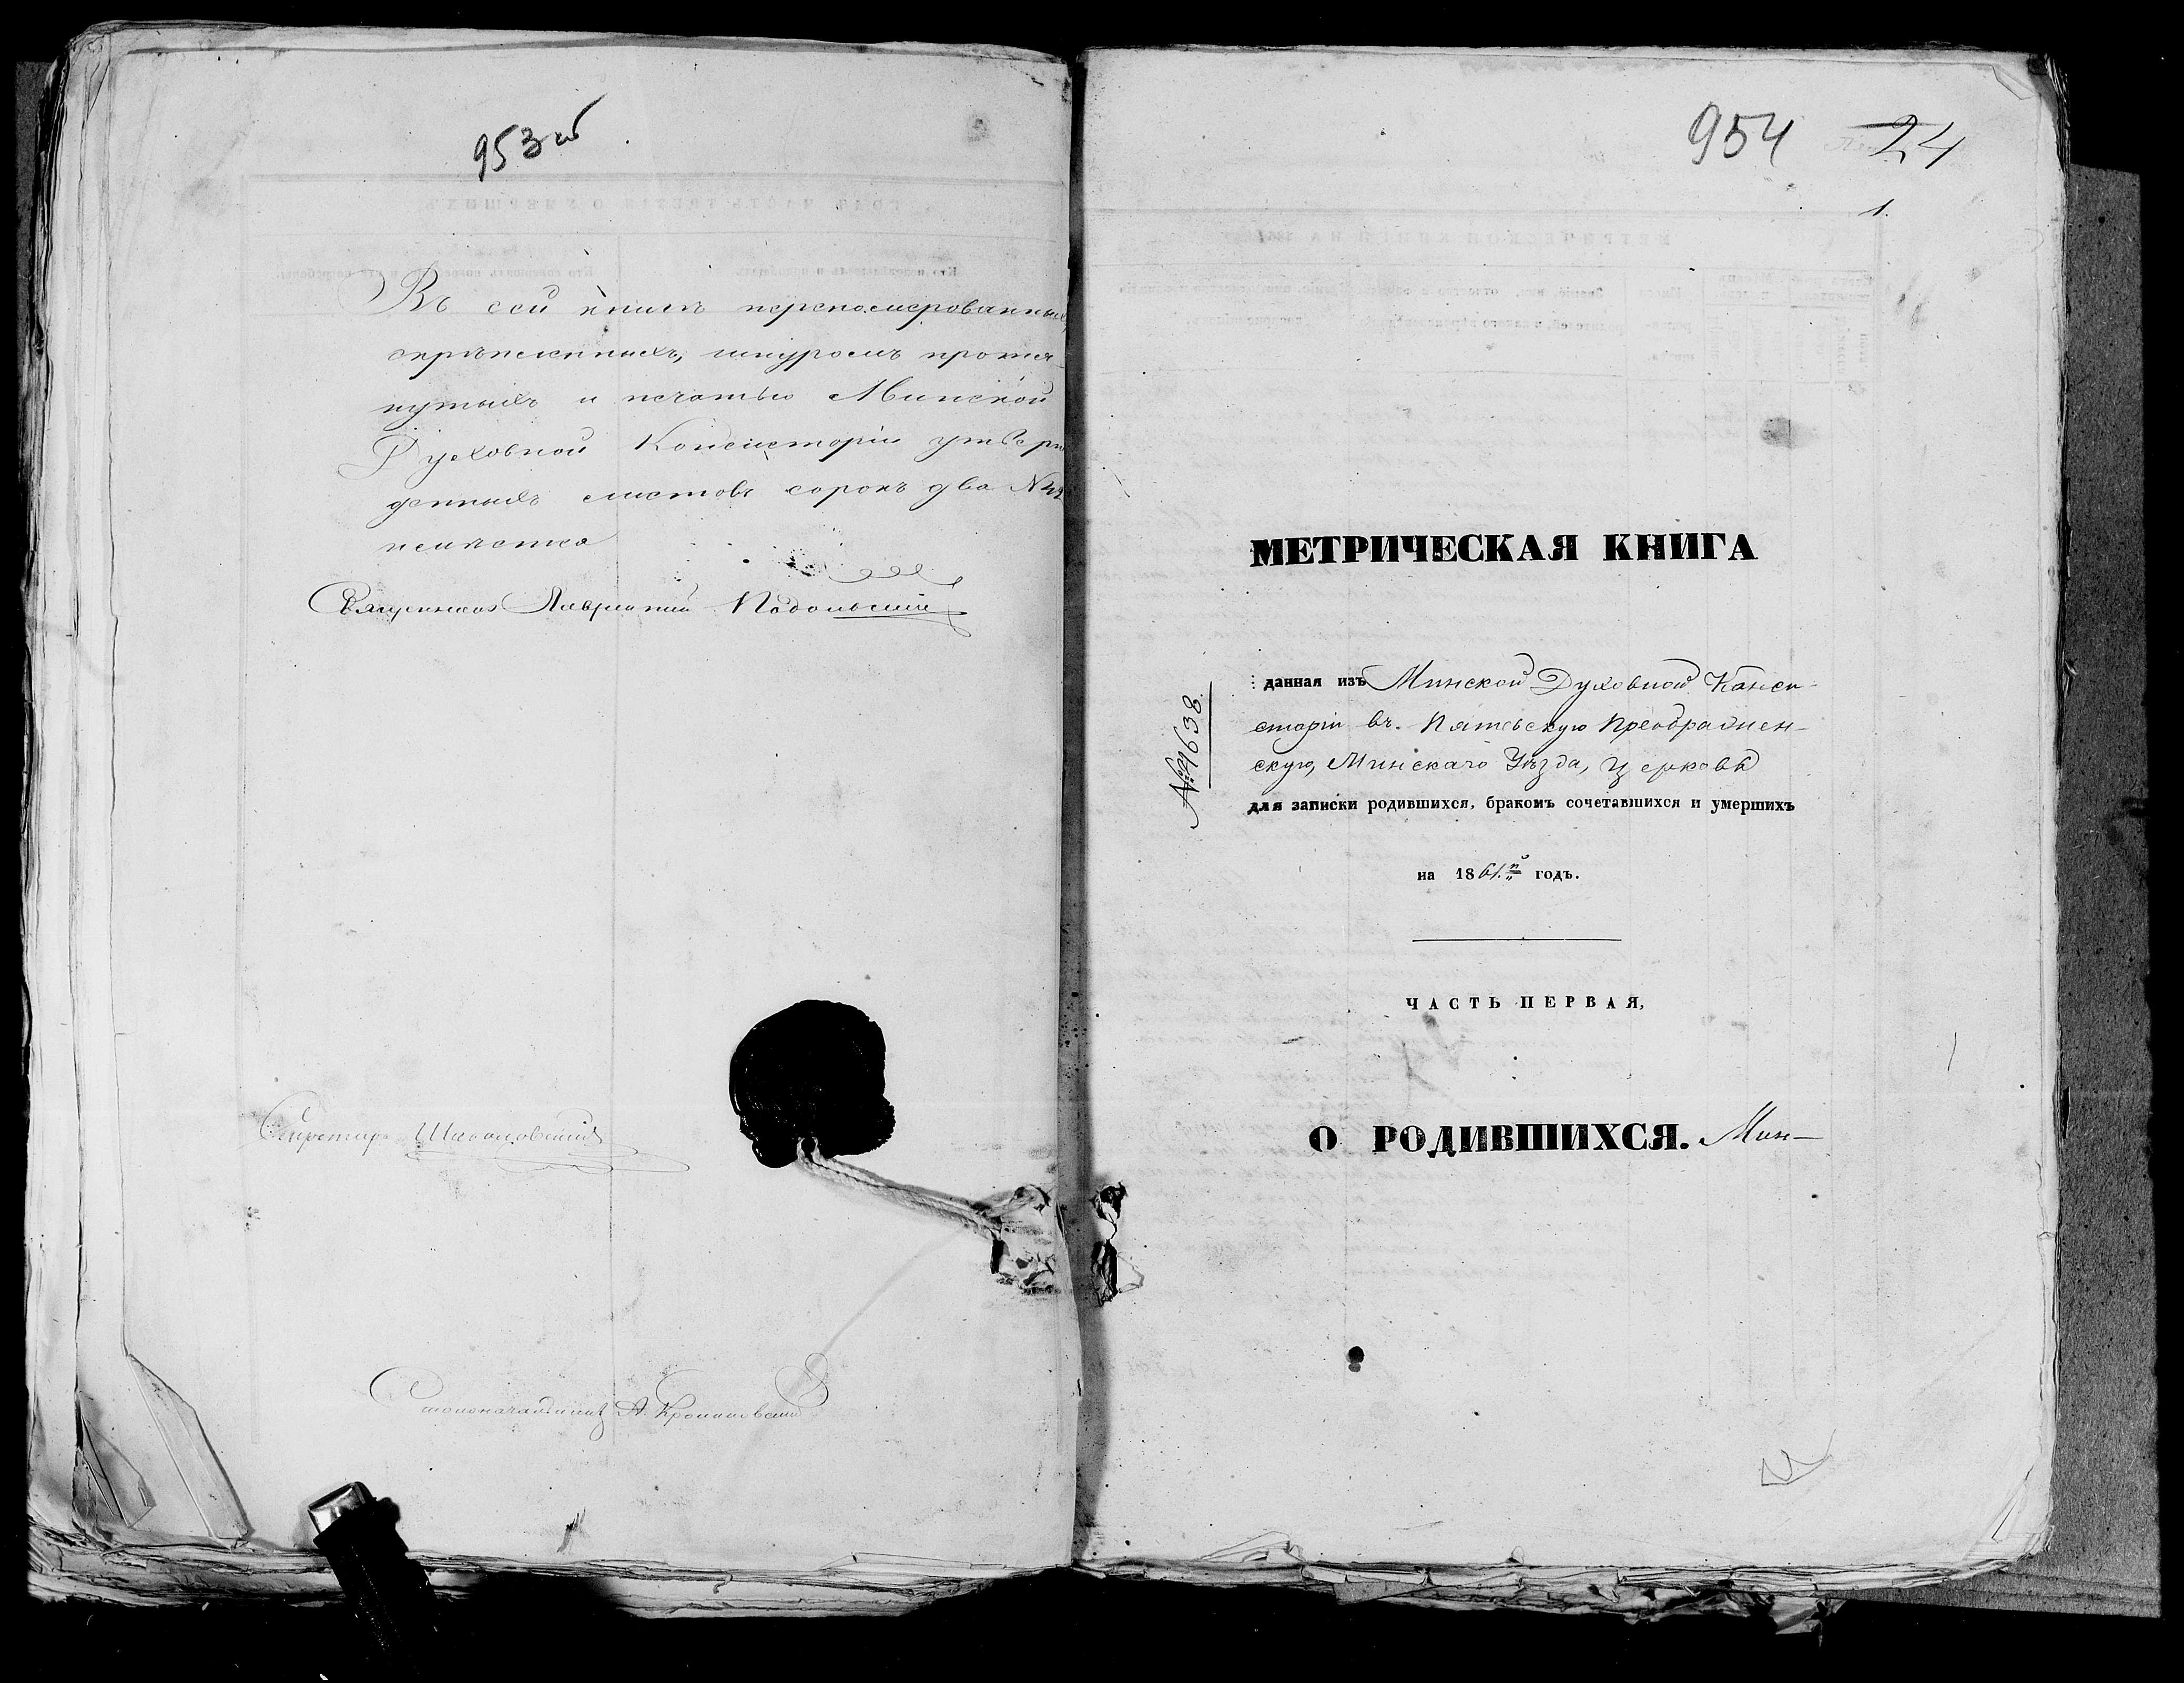 953 об
Въ сей книгѣ перенумерованныхъ,
скрѣпленныхъ, шнуромъ протя-
нутыхъ и печатью Минской
Духовной Консисторіи утверж
денныхъ листовъ сорокъ два № 42
имѣется
Священникъ Лаврентій Подольскій
Секретарь
Столоначальникъ А.
954 24
1.
МЕТРИЧЕСКАЯ КНИГА
№ 9638
данная изъ Минской Духовной Конси-
сторіи въ Пятевскую Преображен-
скую, Минскаго Уѣзда, церковь
для записки родившихся, бракомъ сочетавшихся и умершихъ
на 1861.й годъ.
ЧАСТЬ ПЕРВАЯ,
О РОДИВШИХСЯ. Мин-